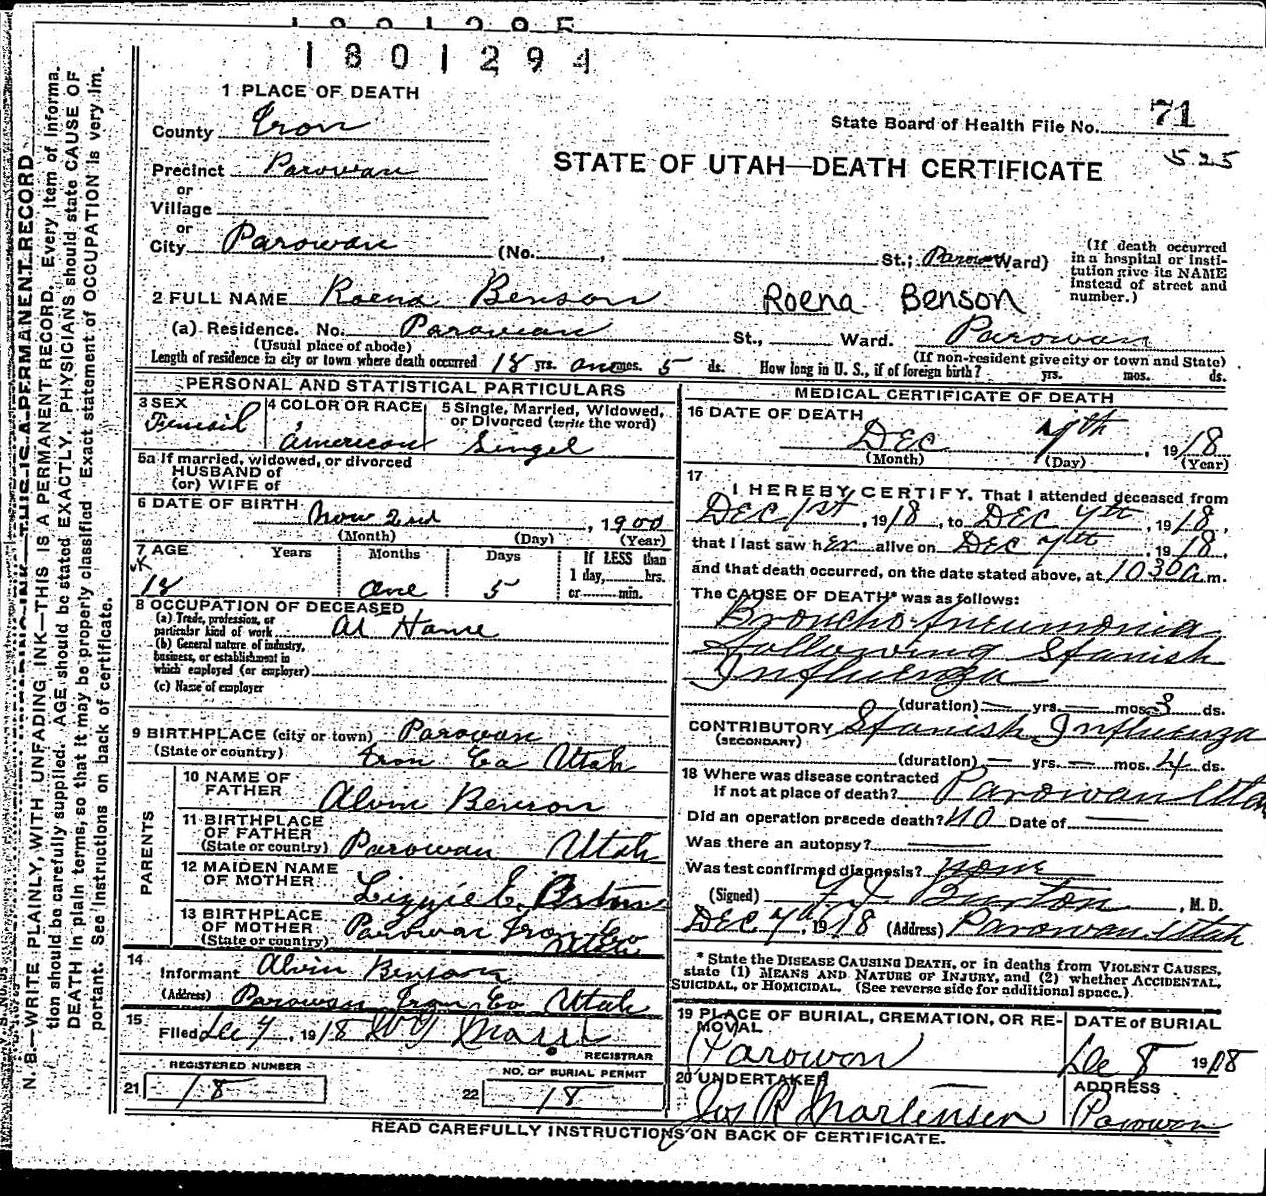 1801295
1801294
1 PLACE OF DEATH
County Iron
State Board of Health File No. 71
525
STATE OF UTAH—DEATH CERTIFICATE
Precinct Parowan
or
Village
or
City Parowan (No. , St.; Parowan Ward)
(If death occurred in a hospital or institution give its NAME instead of street and number.)
2 FULL NAME Roena Benson Roena Benson
(a) Residence. No. Parowan St., Ward. Parowan
(Usual place of abode) (If non-resident give city or town and State)
Length of residence in city or town where death occurred 18 yrs. one mos. 5 ds. How long in U. S., if of foreign birth? yrs. mos. ds.
PERSONAL AND STATISTICAL PARTICULARS
3 SEX 4 COLOR OR RACE 5 Single, Married, Widowed, or Divorced (write the word)
american Singel
5a If married, widowed, or divorced
HUSBAND of
(or) WIFE of
6 DATE OF BIRTH Nov 2nd , 1900
(Month) (Day) (Year)
7 AGE Years Months Days If LESS than
1 day, hrs.
or min.
18 one 5
8 OCCUPATION OF DECEASED
(a) Trade, profession, or particular kind of work At Home
(b) General nature of industry, business, or establishment in which employed (or employer)
(c) Name of employer
9 BIRTHPLACE (city or town) Parowan
(State or country) Iron Co Utah
PARENTS
10 NAME OF FATHER Alvin Benson
11 BIRTHPLACE OF FATHER
(State or country) Parowan Utah
12 MAIDEN NAME OF MOTHER Lizzie E.
13 BIRTHPLACE OF MOTHER
(State or country) Parowan Iron Co
14
Informant Alvin Benson
(Address) Parowan Iron Co Utah
15
Filed Dec 7, 1918
REGISTRAR
REGISTERED NUMBER
21 18
NO. OF BURIAL PERMIT
22 18
MEDICAL CERTIFICATE OF DEATH
16 DATE OF DEATH
Dec 7th , 1918
(Month) (Day) (Year)
17
I HEREBY CERTIFY, That I attended deceased from
Dec 1st , 1918, to Dec 7th , 1918,
that I last saw her alive on Dec 7th 1918
and that death occurred, on the date stated above, at 1030 a.m.
The CAUSE OF DEATH* was as follows:
Broncho-Pneumonia
following Spanish
Influenza
(duration) — yrs. — mos. 3 ds.
CONTRIBUTORY Spanish Influenza
(SECONDARY)
(duration) — yrs. — mos. 4 ds.
18 Where was disease contracted
If not at place of death? Parowan Utah
Did an operation precede death? NO Date of —
Was there an autopsy? —
Was test confirmed diagnosis? none
(Signed) Burton , M. D.
Dec 7th, 1918 (Address) Parowan Utah
* State the DISEASE CAUSING DEATH, or in deaths from VIOLENT CAUSES,
state (1) MEANS AND NATURE OF INJURY, and (2) whether ACCIDENTAL,
SUICIDAL, or HOMICIDAL. (See reverse side for additional space.)
19 PLACE OF BURIAL, CREMATION, OR REMOVAL DATE of BURIAL
Parowan Dec 8 1918
20 UNDERTAKER ADDRESS
Jos R Mortensen Parowan
READ CAREFULLY INSTRUCTIONS ON BACK OF CERTIFICATE.
N. B.—WRITE PLAINLY, WITH UNFADING INK—THIS IS A PERMANENT RECORD. Every item of informa-
tion should be carefully supplied. AGE should be stated EXACTLY. PHYSICIANS should state CAUSE OF
DEATH in plain terms, so that it may be properly classified. Exact statement of OCCUPATION is very im-
portant. See instructions on back of certificate.